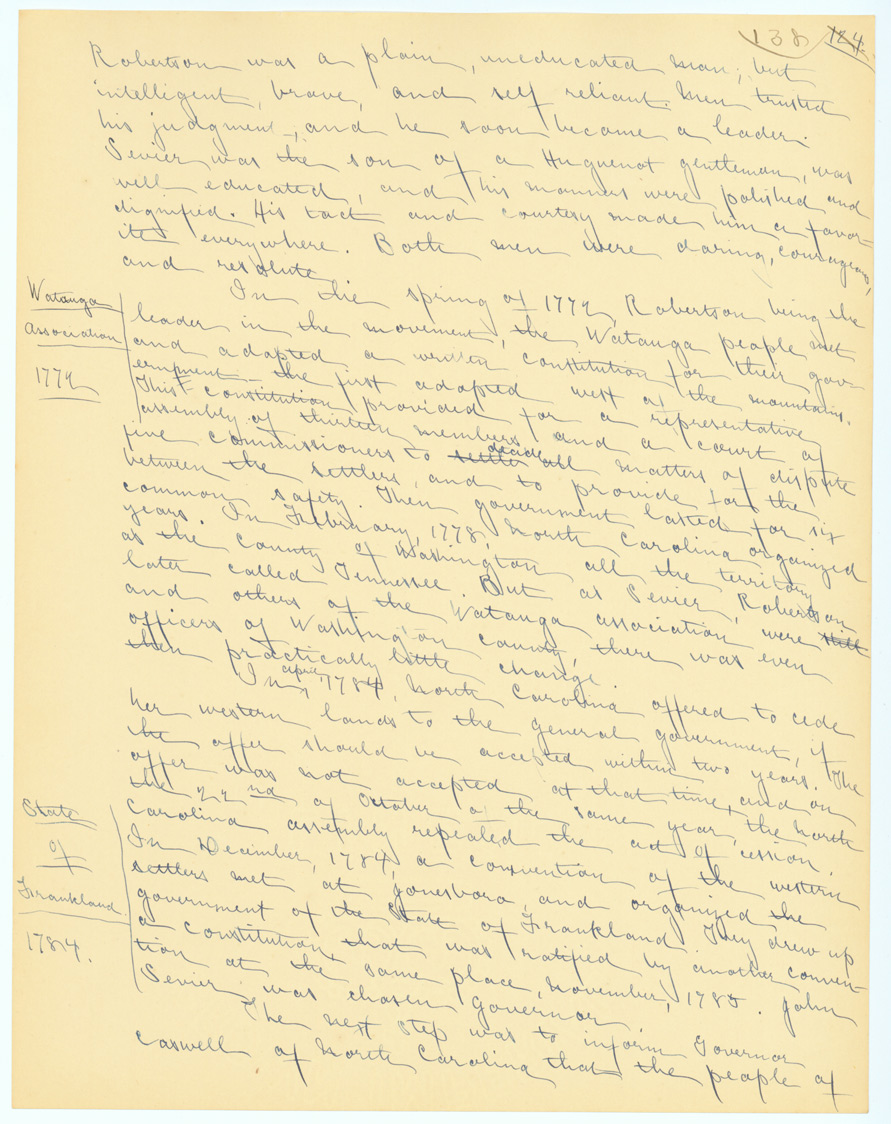 138 124.
Robertson was a plain, uneducated man; but
intelligent, brave, and self reliant. Men trusted
his judgment, and he soon became a leader.
Sevier was the son of a Huguenot gentleman, was
well educated, and his manners were polished and
dignified. His tact and courtesy made him a favor-
ite everywhere. Both men were daring, courageous,
and resolute.
In the spring of 1772, Robertson being the
Watauga
Association
1772
leader in the movement, the Watauga people met
and adopted a written constitution for their gov-
ernment - the first adopted west of the mountains.
This constitution provided for a representative
assembly of thirteen members and a court of
five commissioners to settle decide all matters of dispute
between the settlers, and to provide for the
common safety. Their government lasted for six
years. In February, 1778, North Carolina organized
as the county of Washington all the territory
later called Tennessee. But as Sevier, Robertson
and others of the Watauga association were still
officers of Washington county, there was even
then practically little change.
In April, 1784, North Carolina offered to cede
her western lands to the general government, if
the offer should be accepted within two years. The
offer was not accepted at that time, and on
the 22nd of October of the same year, the North
Carolina assembly repealed the act of cession.
State
of
Frankland.
1784.
In December, 1784, a convention of the western
settlers met at Jonesboro, and organized the
government of the State of Frankland. They drew up
a constitution, that was ratified by another conven-
tion at the same place, November, 1785. John
Sevier was chosen governor.
The next step was to inform Governor
Caswell of North Carolina that the people of